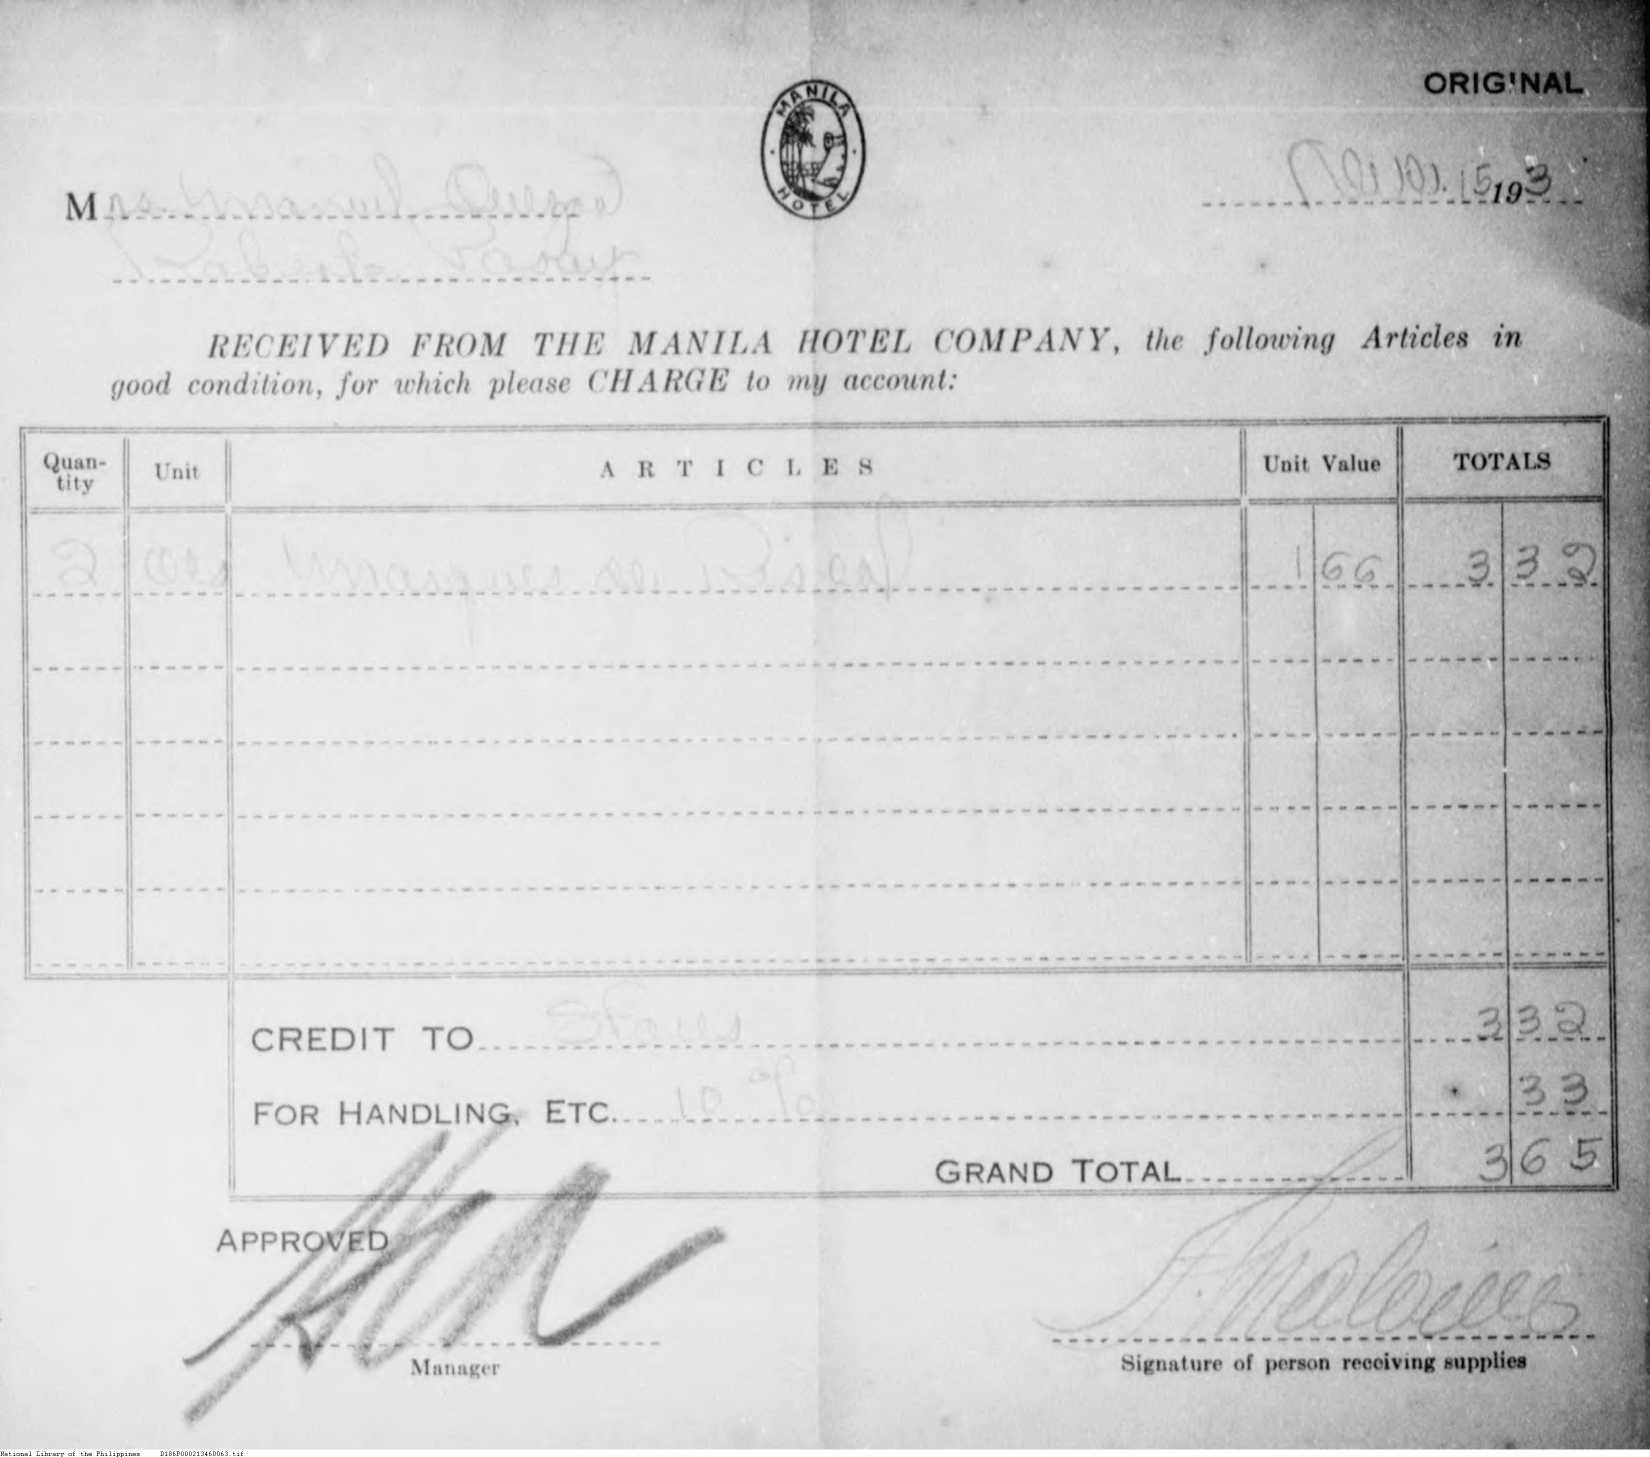 ORIGINAL
MANILA
HOTEL
Mrs. Manuel Quezon
15 193
RECEIVED FROM THE MANILA HOTEL COMPANY, the following Articles in
good condition, for which please CHARGE to my account:
Quan-tity Unit ARTICLES Unit Value TOTALS
2 Marques de Riscal 1 66 3 32
CREDIT TO Stores 3 32
FOR HANDLING, ETC. 10 % 33
GRAND TOTAL 3 65
APPROVED
Manager
Signature of person receiving supplies
National Library of the Philippines D186P00021346D063.tif